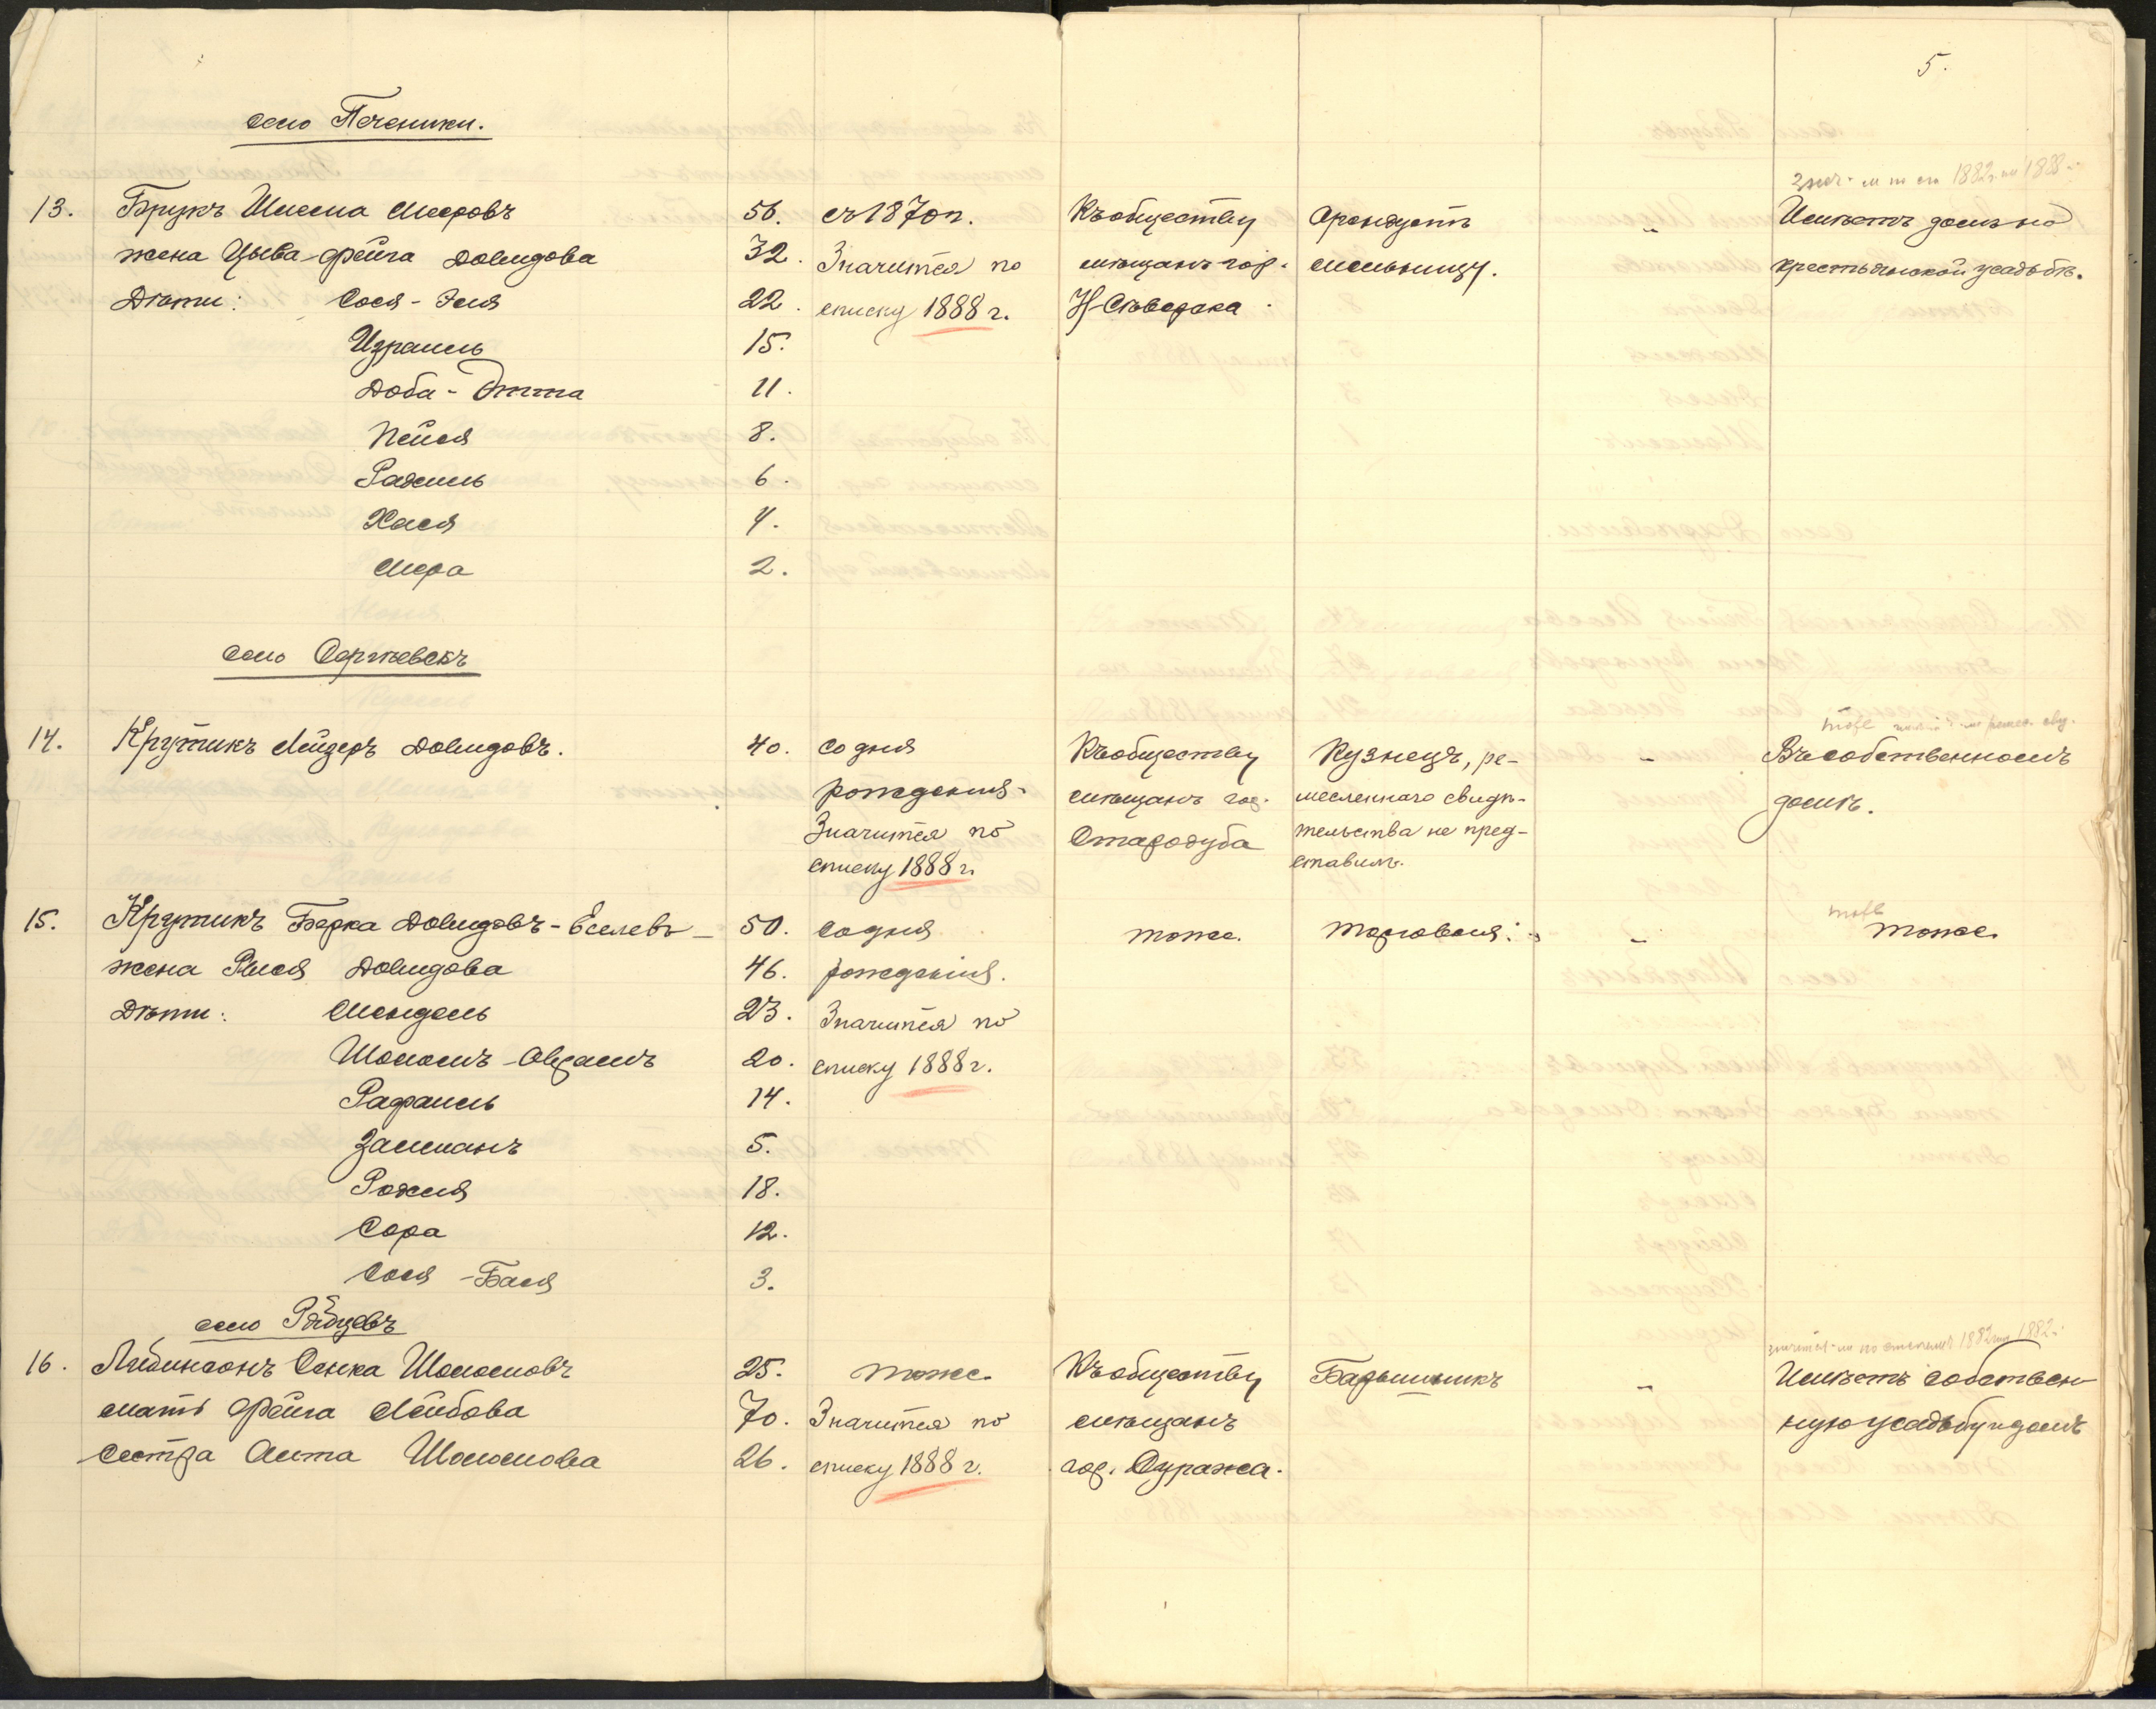 5.
село Печеники.
13. Брукъ Шлема Мееровъ 56. съ 1870 г. Къ обществу Арендуетъ „ Имѣетъ домъ на
жена Цыва-Фейга Давидова 32. Значится по мѣщанъ гор. мельницу. крестьянской усадьбѣ.
Дѣти: Сося-Эля 22. списку 1888 г. Н-Сѣверска
Израиль 15.
Доба-Этта 11.
Пейся 8.
Рахиль 6.
Хася 4.
Мера 2.
село Сергѣевскъ
14. Крутикъ Лейзеръ Давидовъ. 40. со дня Къ обществу Кузнецъ, ре- „ Въ собственномъ
рожденія. мѣщанъ гор. месленнаго свидѣ- домѣ.
Значится по Стародуба тельства не пред-
списку 1888 г. ставилъ.
тоже
15. Крутикъ Берка Давидовъ-Еселевъ 50. со дня тоже. торговля. „ тоже.
жена Рися Давидова 46. рожденія.
Дѣти: Мендель 23. Значится по
Шоломъ-Аврамъ 20. списку 1888 г.
Рафаиль 14.
Залманъ 5.
Рохля 18.
Сора 12.
Сося-Бася 3.
село Рябцевъ
16. Либинсонъ Сенка Шоломовъ 25. тоже. Къ обществу Барышникъ „ Имѣетъ собствен-
мать Фейга Лейбова 70. Значится по мѣщанъ ную усадьбу и домъ
сестра Аита Шоломова 26. списку 1888 г. гор. Суража.